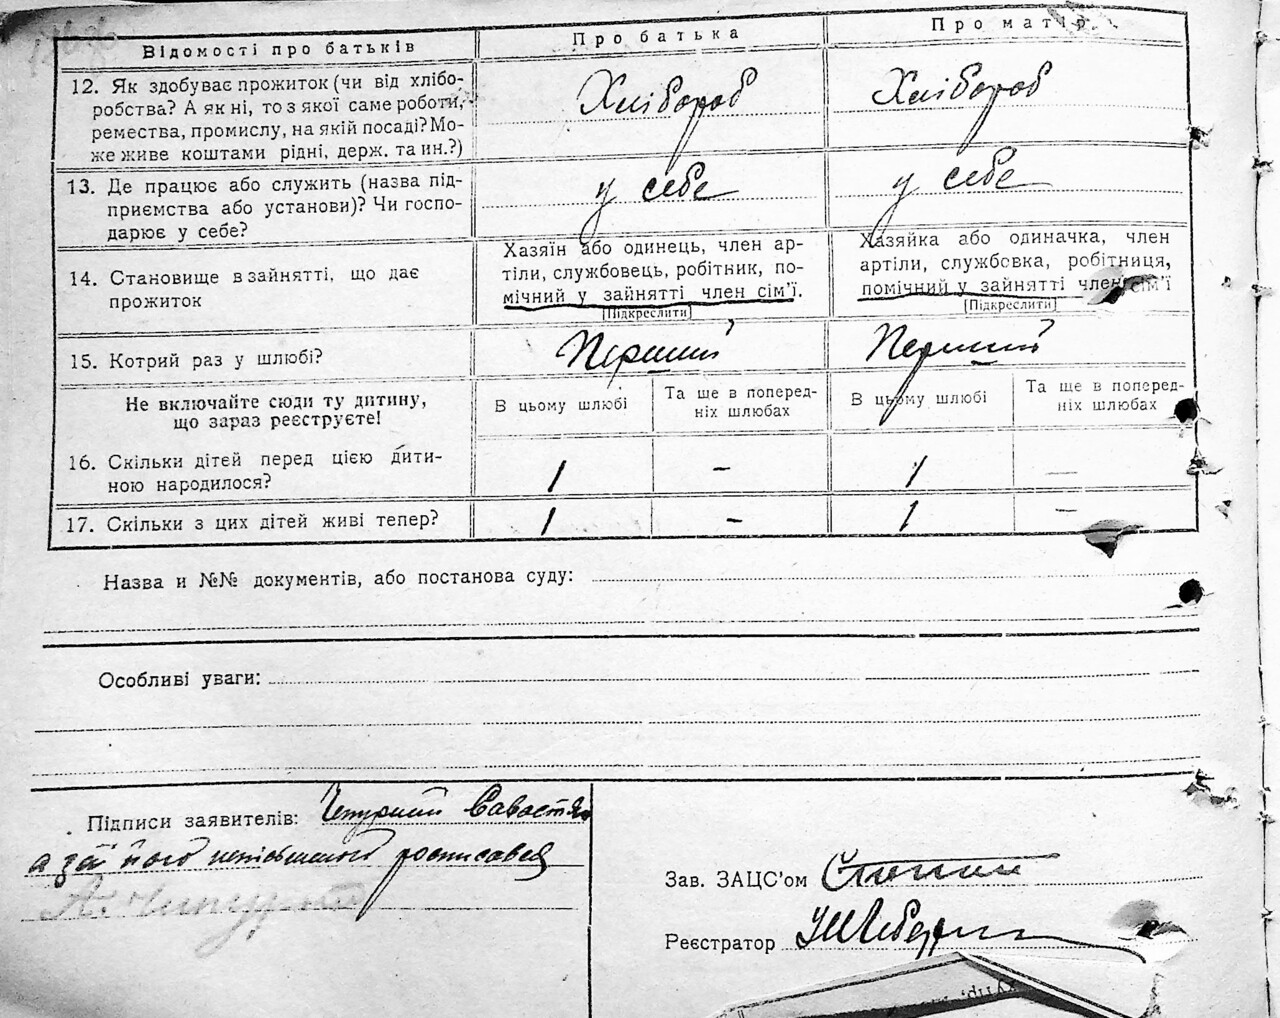 Відомості про батьків
Про батька
Про матір
12. Як здобуває прожиток (чи від хлібо-
робства? А як ні, то з якої саме роботи,
ремества, промислу, на якій посаді? Мо-
же живе коштами рідні, держ. та ин.?)
Хлібороб
Хлібороб
13. Де працює або служить (назва під-
приємства або установи)? Чи госпо-
дарює у себе?
у себе
у себе
14. Становище в зайнятті, що дає
прожиток
Хазяїн або одинець, член ар-
тіли, службовець, робітник, по-
мічний у зайнятті член сім'ї.
[Підкреслити]
Хазяйка або одиначка, член
артіли, службовка, робітниця,
помічний у зайнятті член сім'ї
[Підкреслити]
15. Котрий раз у шлюбі?
Перший
Перший
Не включайте сюди ту дитину,
що зараз реєструєте!
В цьому шлюбі
Та ще в поперед-
ніх шлюбах
В цьому шлюбі
Та ще в поперед-
ніх шлюбах
16. Скільки дітей перед цією дити-
ною народилося?
1
-
1
—
17. Скільки з цих дітей живі тепер?
1
-
1
—
Назва и №№ документів, або постанова суду:
Особливі уваги:
Підписи заявителів: Чепурний Савастян
а за його неписьменого росписався
А. Чепурний
Зав. ЗАЦС'ом
Реєстратор